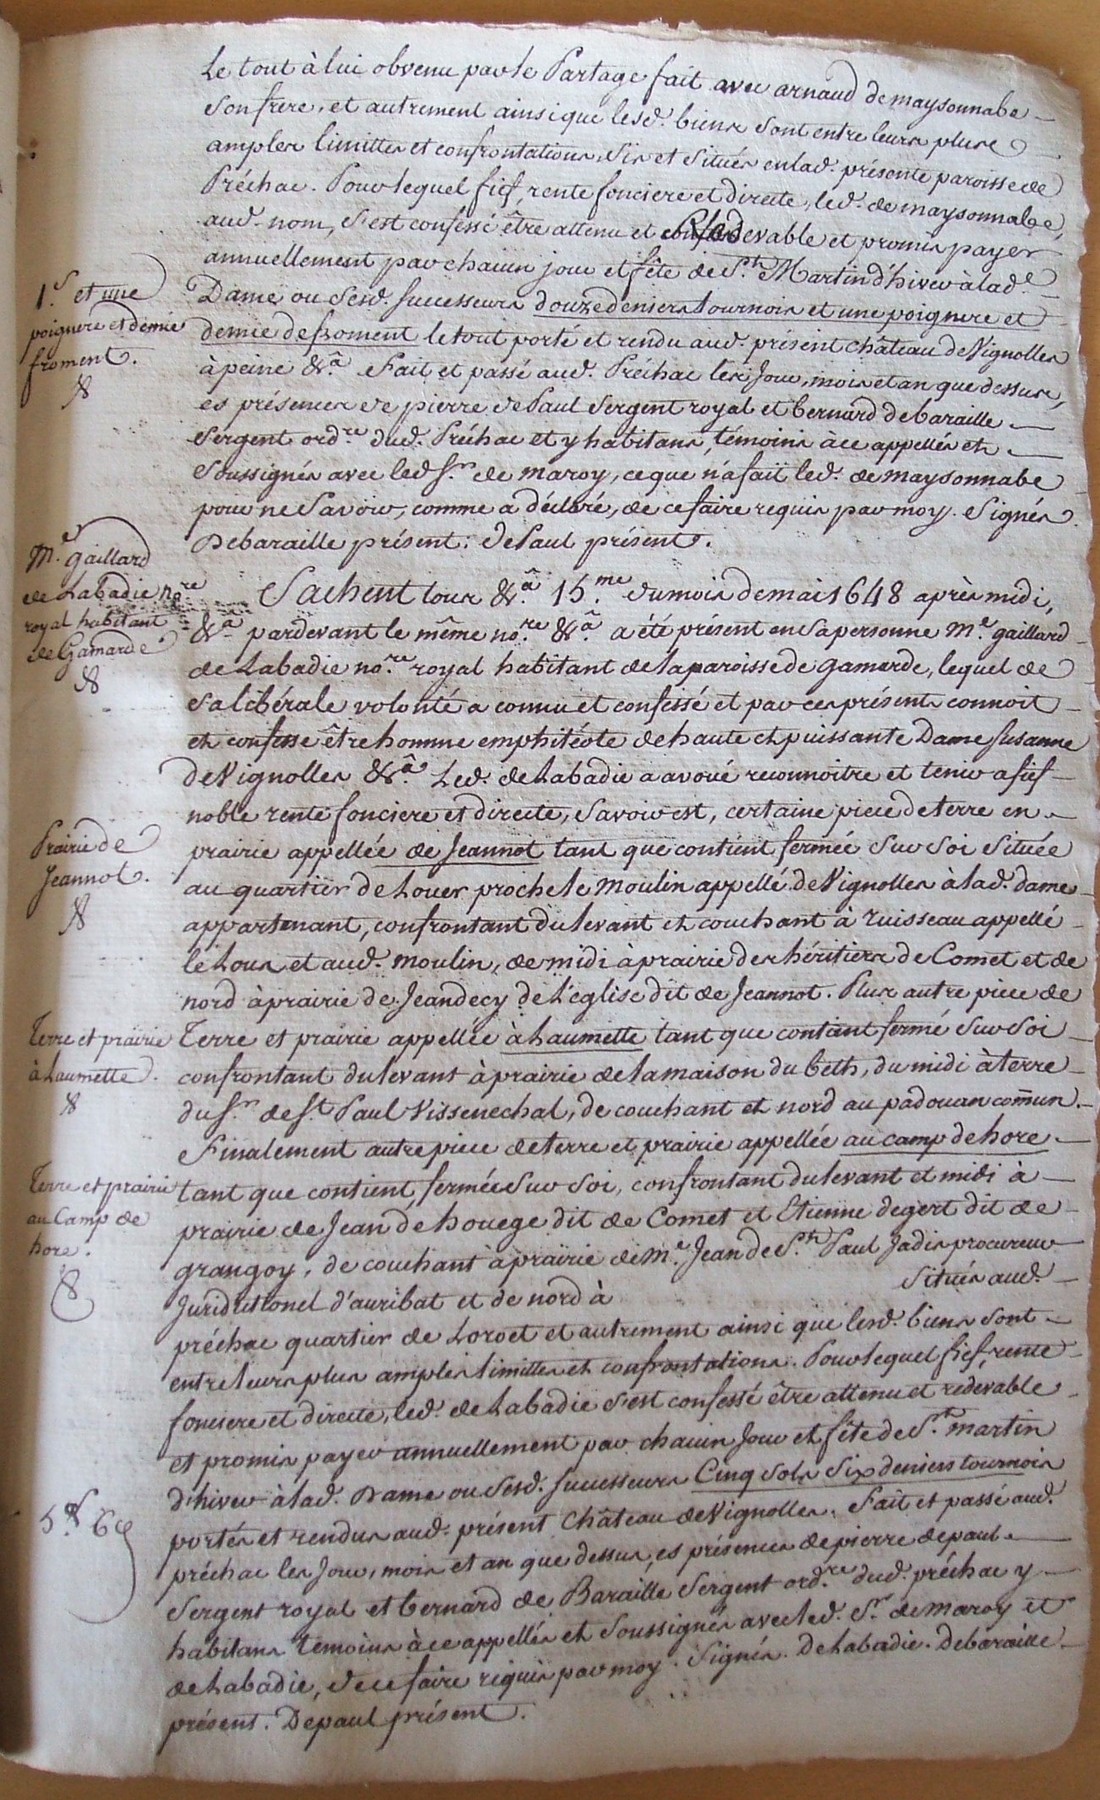 Le tout à lui obvenu par le Partage fait avec arnaud de maysonnabe
son frere, et autrement ainsi que lesd. biens sont entre leurs plus
amples limittes et confrontations, sis et situés en lad. présente paroisse de
Préchac. Pour lequel fief, rente fonciere et directe, led. de maysonnabe,
aud. nom, s'est confessé être attenu et redevable et promis payer
annuellement par chacun jour et fête de St. Martin d'hiver à lad.
1.s et une
poignere et demie
froment.
Dame ou sesd. successeurs douze deniers tournois et une poignere et
demie de froment le tout porté et rendu aud. présent château de Vignolles
à peine &a. Fait et passé aud. Préchac les jour, mois et an que dessus,
es présences de pierre de Paul sergent royal et bernard debaraille
sergent ordre. dud. Préchac et y habitans, témoins à ce appellés et
soussignés avec led. Sr. de maroy, ce que n'a fait led. de maysonnabe
pour ne savoir, comme a déclaré, de ce faire requis par moy. Signés
Debaraille présent. dePaul présent.
Me. gaillard
de Labadie nore.
royal habitant
de Gamarde
Sachent tous &a. 15.me du mois de mai 1648 après midi,
&a. pardevant le même nore. &a. a été présent en sa personne Me. gaillard
de Labadie nore. royal habitant de la paroisse de gamarde, lequel de
sa libérale volonté a connu et confessé et par ces présents connoit
et confesse être homme emphitéote de haute et puissante Dame susanne
de Vignolles &a. Led. de Labadie a avoué reconnoitre et tenir a fief
noble rente fonciere et directe, savoir est, certaine piece de terre en
Prairie de
Jeannot.
prairie appellée de Jeannot tant que contient fermée sur soi située
au quartier de Louer proche le moulin appellé de Vignolles à lad. dame
appartenant, confrontant du levant et couchant à ruisseau appellé
le Lous et aud. moulin, de midi à prairie des héritiers de Comet et de
nord à prairie de Jeandecy de L'église dit de Jeannot. Plus autre piece de
Terre et prairie
à Laumette.
Terre et prairie appellée à Laumette tant que contient fermé sur soi
confrontant du levant à prairie de la maison du beth, du midi à terre
du Sr. de St. Paul Vissenechal, de couchant et nord au padouan comun.
Finalement autre piece de terre et prairie appellée au camp de hore
Terre et prairie
au Camp de
hore.
tant que contient, fermée sur soi, confrontant du levant et midi à
prairie de Jean de houege dit de Comet et Etienne degert dit de
grangoy, de couchant à prairie de Me. Jean de St. Paul Jadis procureur
Juridictionel d'auribat et de nord à situés aud.
préchac quartier de Loroet et autrement ainsi que lesd. biens sont
entre leurs plus amples limittes et confrontations. Pour lequel fief, rente
fonciere et directe, led. de Labadie s'est confessé être attenu et redevable
et promis payer annuellement par chacun jour et fête de St. martin
d'hiver à lad. Dame ou sesd. successeurs Cinq sols six deniers tournois
5.s 6d
portés et rendus aud. présent château de Vignolles. Fait et passé aud.
préchac les jour, mois et an que dessus, es présences de pierre depaul
sergent royal et bernard de Baraille sergent ordre. dud. préchac y
habitans témoins à ce appellés et soussignés avec led. Sr. de maroy et
de Labadie, de ce faire requis par moy. Signés. DeLabadie. Debaraille
présent. Depaul présent.